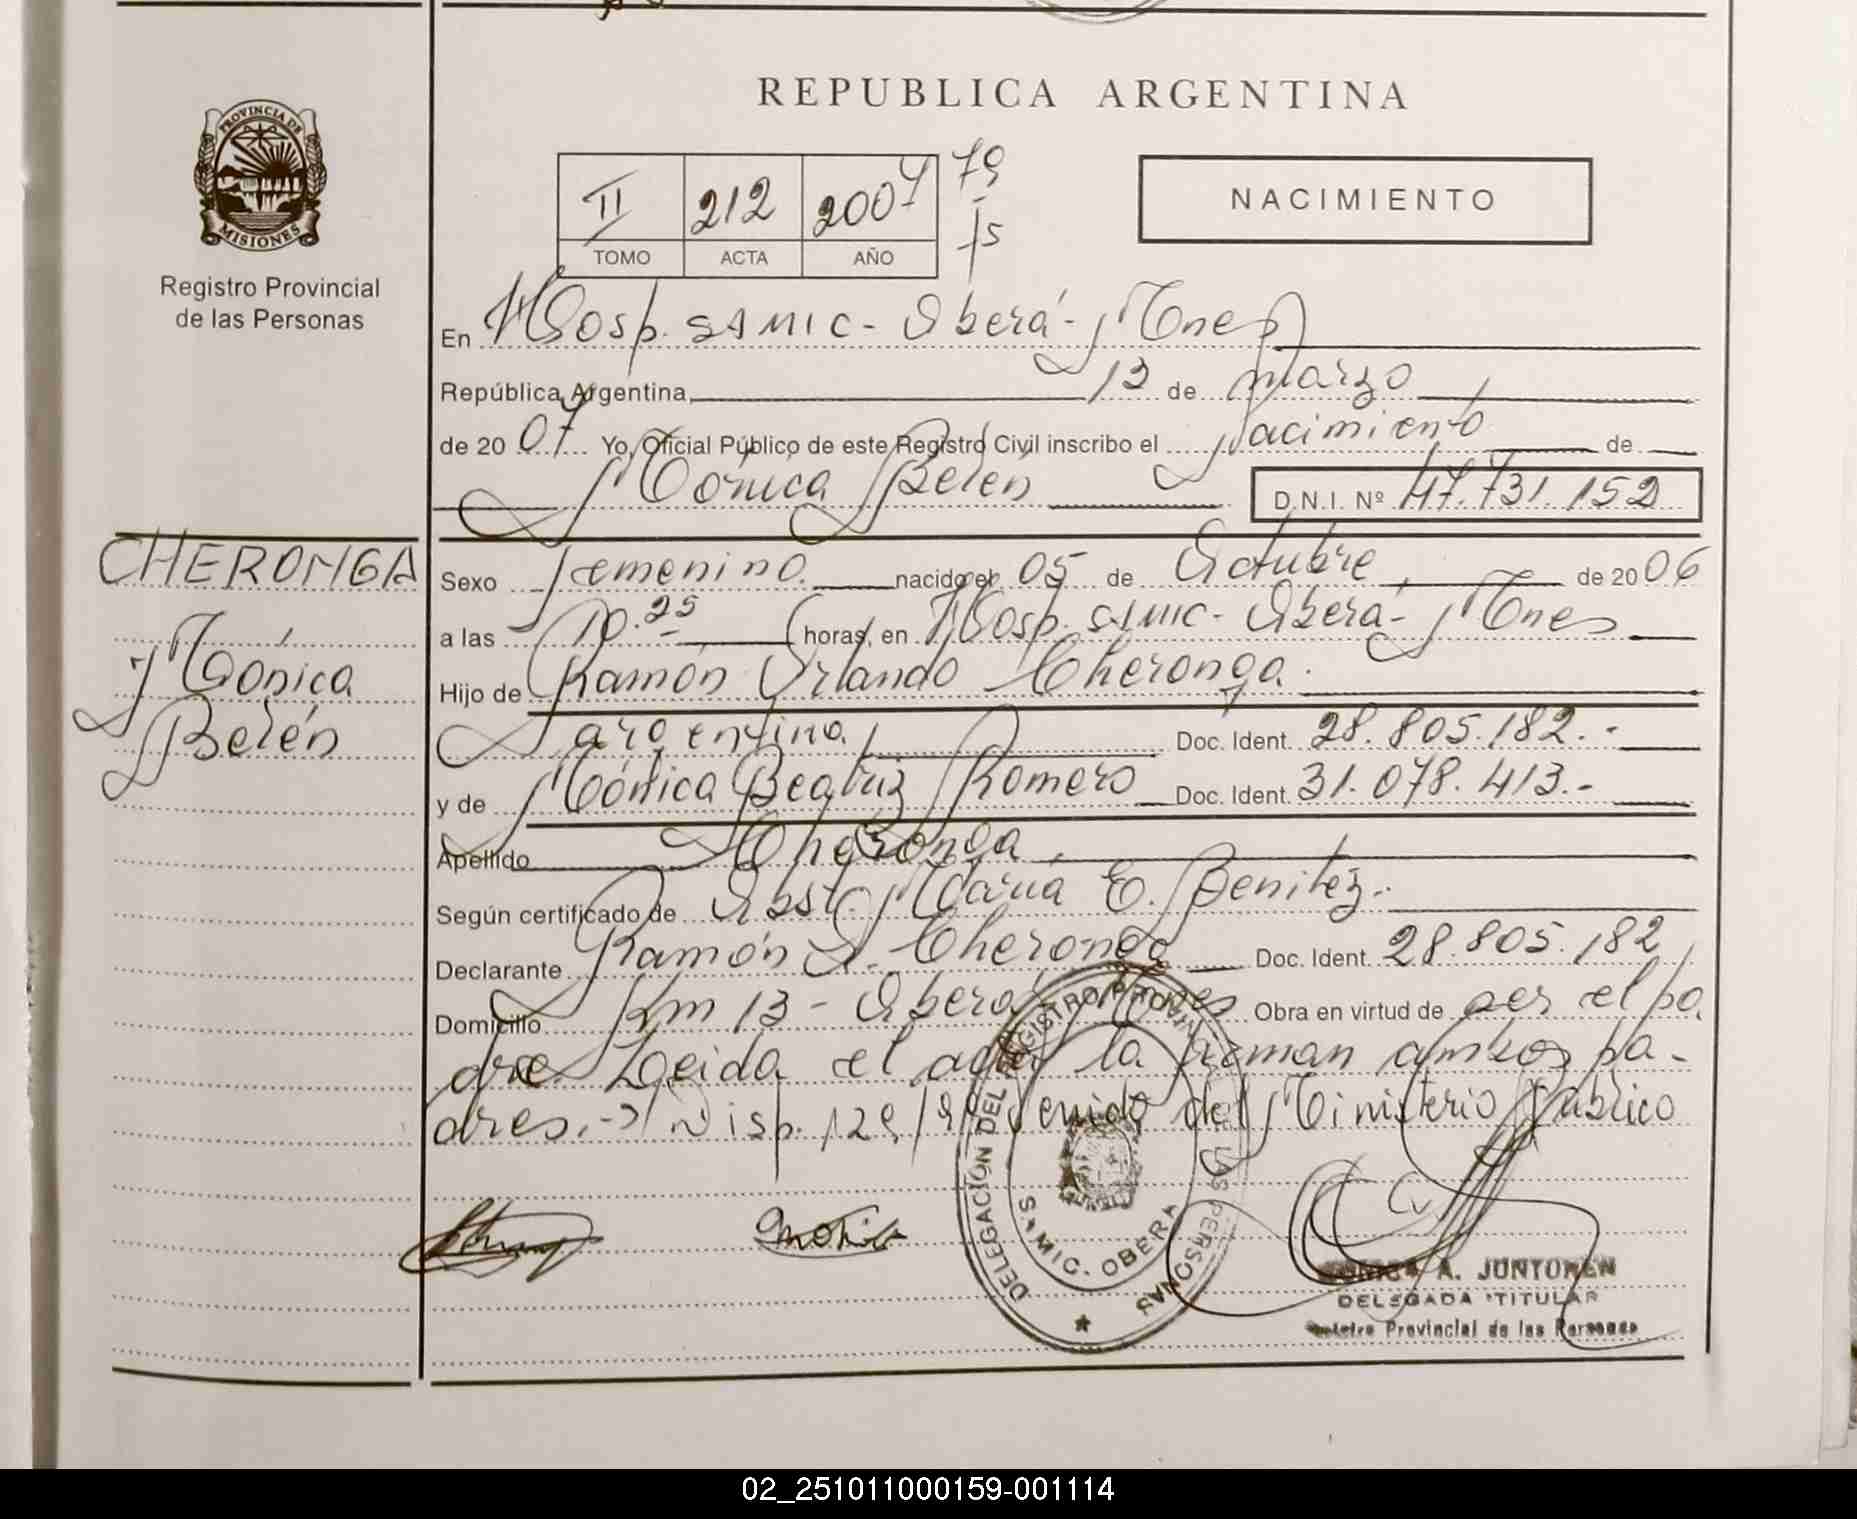 REPUBLICA ARGENTINA
PROVINCIA DE
MISIONES
Registro Provincial
de las Personas
II 212 2007 79
TOMO ACTA AÑO
NACIMIENTO
En Hosp. SAMIC - Oberá - Mnes
República Argentina, 13 de marzo
de 20 07 Yo, Oficial Público de este Registro Civil inscribo el Nacimiento de
Mónica Belén D.N.I. Nº 47.731.152
CHERONGA
Mónica
Belén
Sexo Femenino. nacido el 05 de Octubre, de 20 06
a las 10.25 horas, en Hosp. SAMIC - Oberá - Mnes
Hijo de Ramón Orlando Cheronga.
argentina Doc. Ident. 28.805.182.-
y de Mónica Beatriz Romero Doc. Ident. 31.078.413.-
Apellido Cheronga
Según certificado de Obst. María E. Benitez.
Declarante Ramón O. Cheronga Doc. Ident. 28.805.182
Domicilio Km 13 - Oberá Mnes Obra en virtud de ser el pa
dre. Leida el acta la firman ambos pa-
dres. -> Disp. 129/9 del Ministerio Público
DELEGACIÓN DEL REGISTRO PROVINCIAL DE LAS PERSONAS
SAMIC. OBERA
Mónica
A. JUNTONEN
DELEGADA TITULAR
Registro Provincial de las Personas
02_251011000159-001114